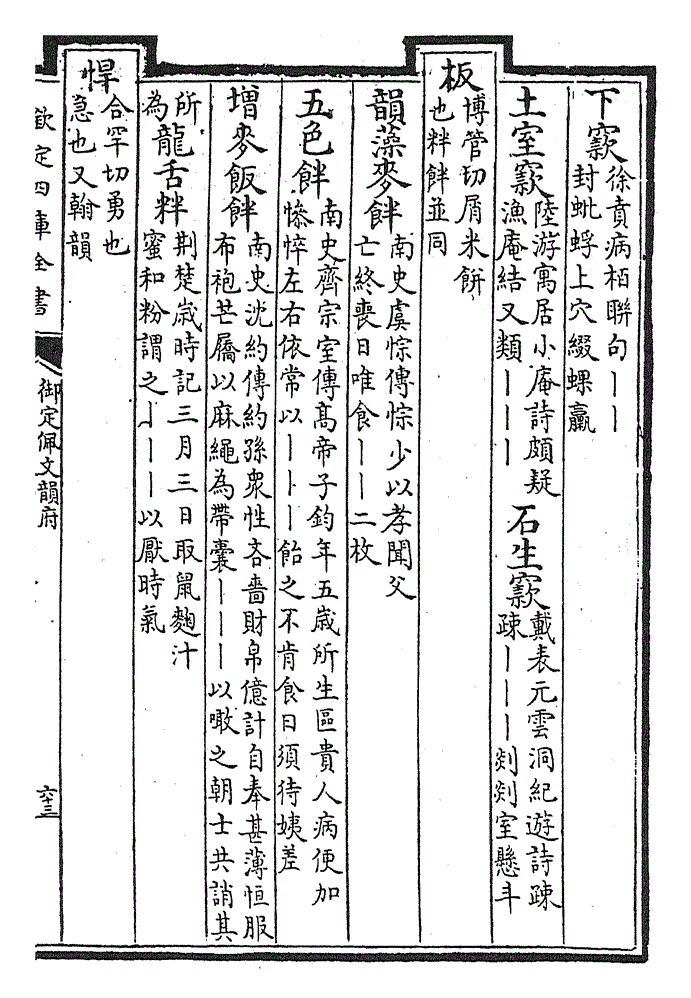 下窾徐賁病栢聯句丨丨
封蚍蜉上穴綴蜾蠃
土室窾陸游寓居小庵詩頗疑
漁庵結又類丨丨丨
石生窾戴表元雲洞紀遊詩疎
疎丨丨丨剡剡室懸斗
板博管切屑米餅
也䉽䬳並同
韻藻麥䬳南史虞悰傳悰少以孝聞父
亡終喪日唯食丨丨二枚
五色䬳南史齊宗室傳高帝子鈞年五歲所生區貴人病便加
慘悴左右依常以丨丨丨飴之不肯食曰須待姨差
增麥飯䬳南史沈約傳約孫衆性吝嗇財帛億計自奉甚薄恒服
布袍芒屩以麻繩為帶囊丨丨丨以噉之朝士共誚其
所
為
龍舌䉽荆楚歲時記三月三日取鼠麴汁
蜜和粉謂之丨丨丨以厭時氣
悍合罕切勇也
急也又翰韻
欽定四庫全書
御定佩文韻府
六十三